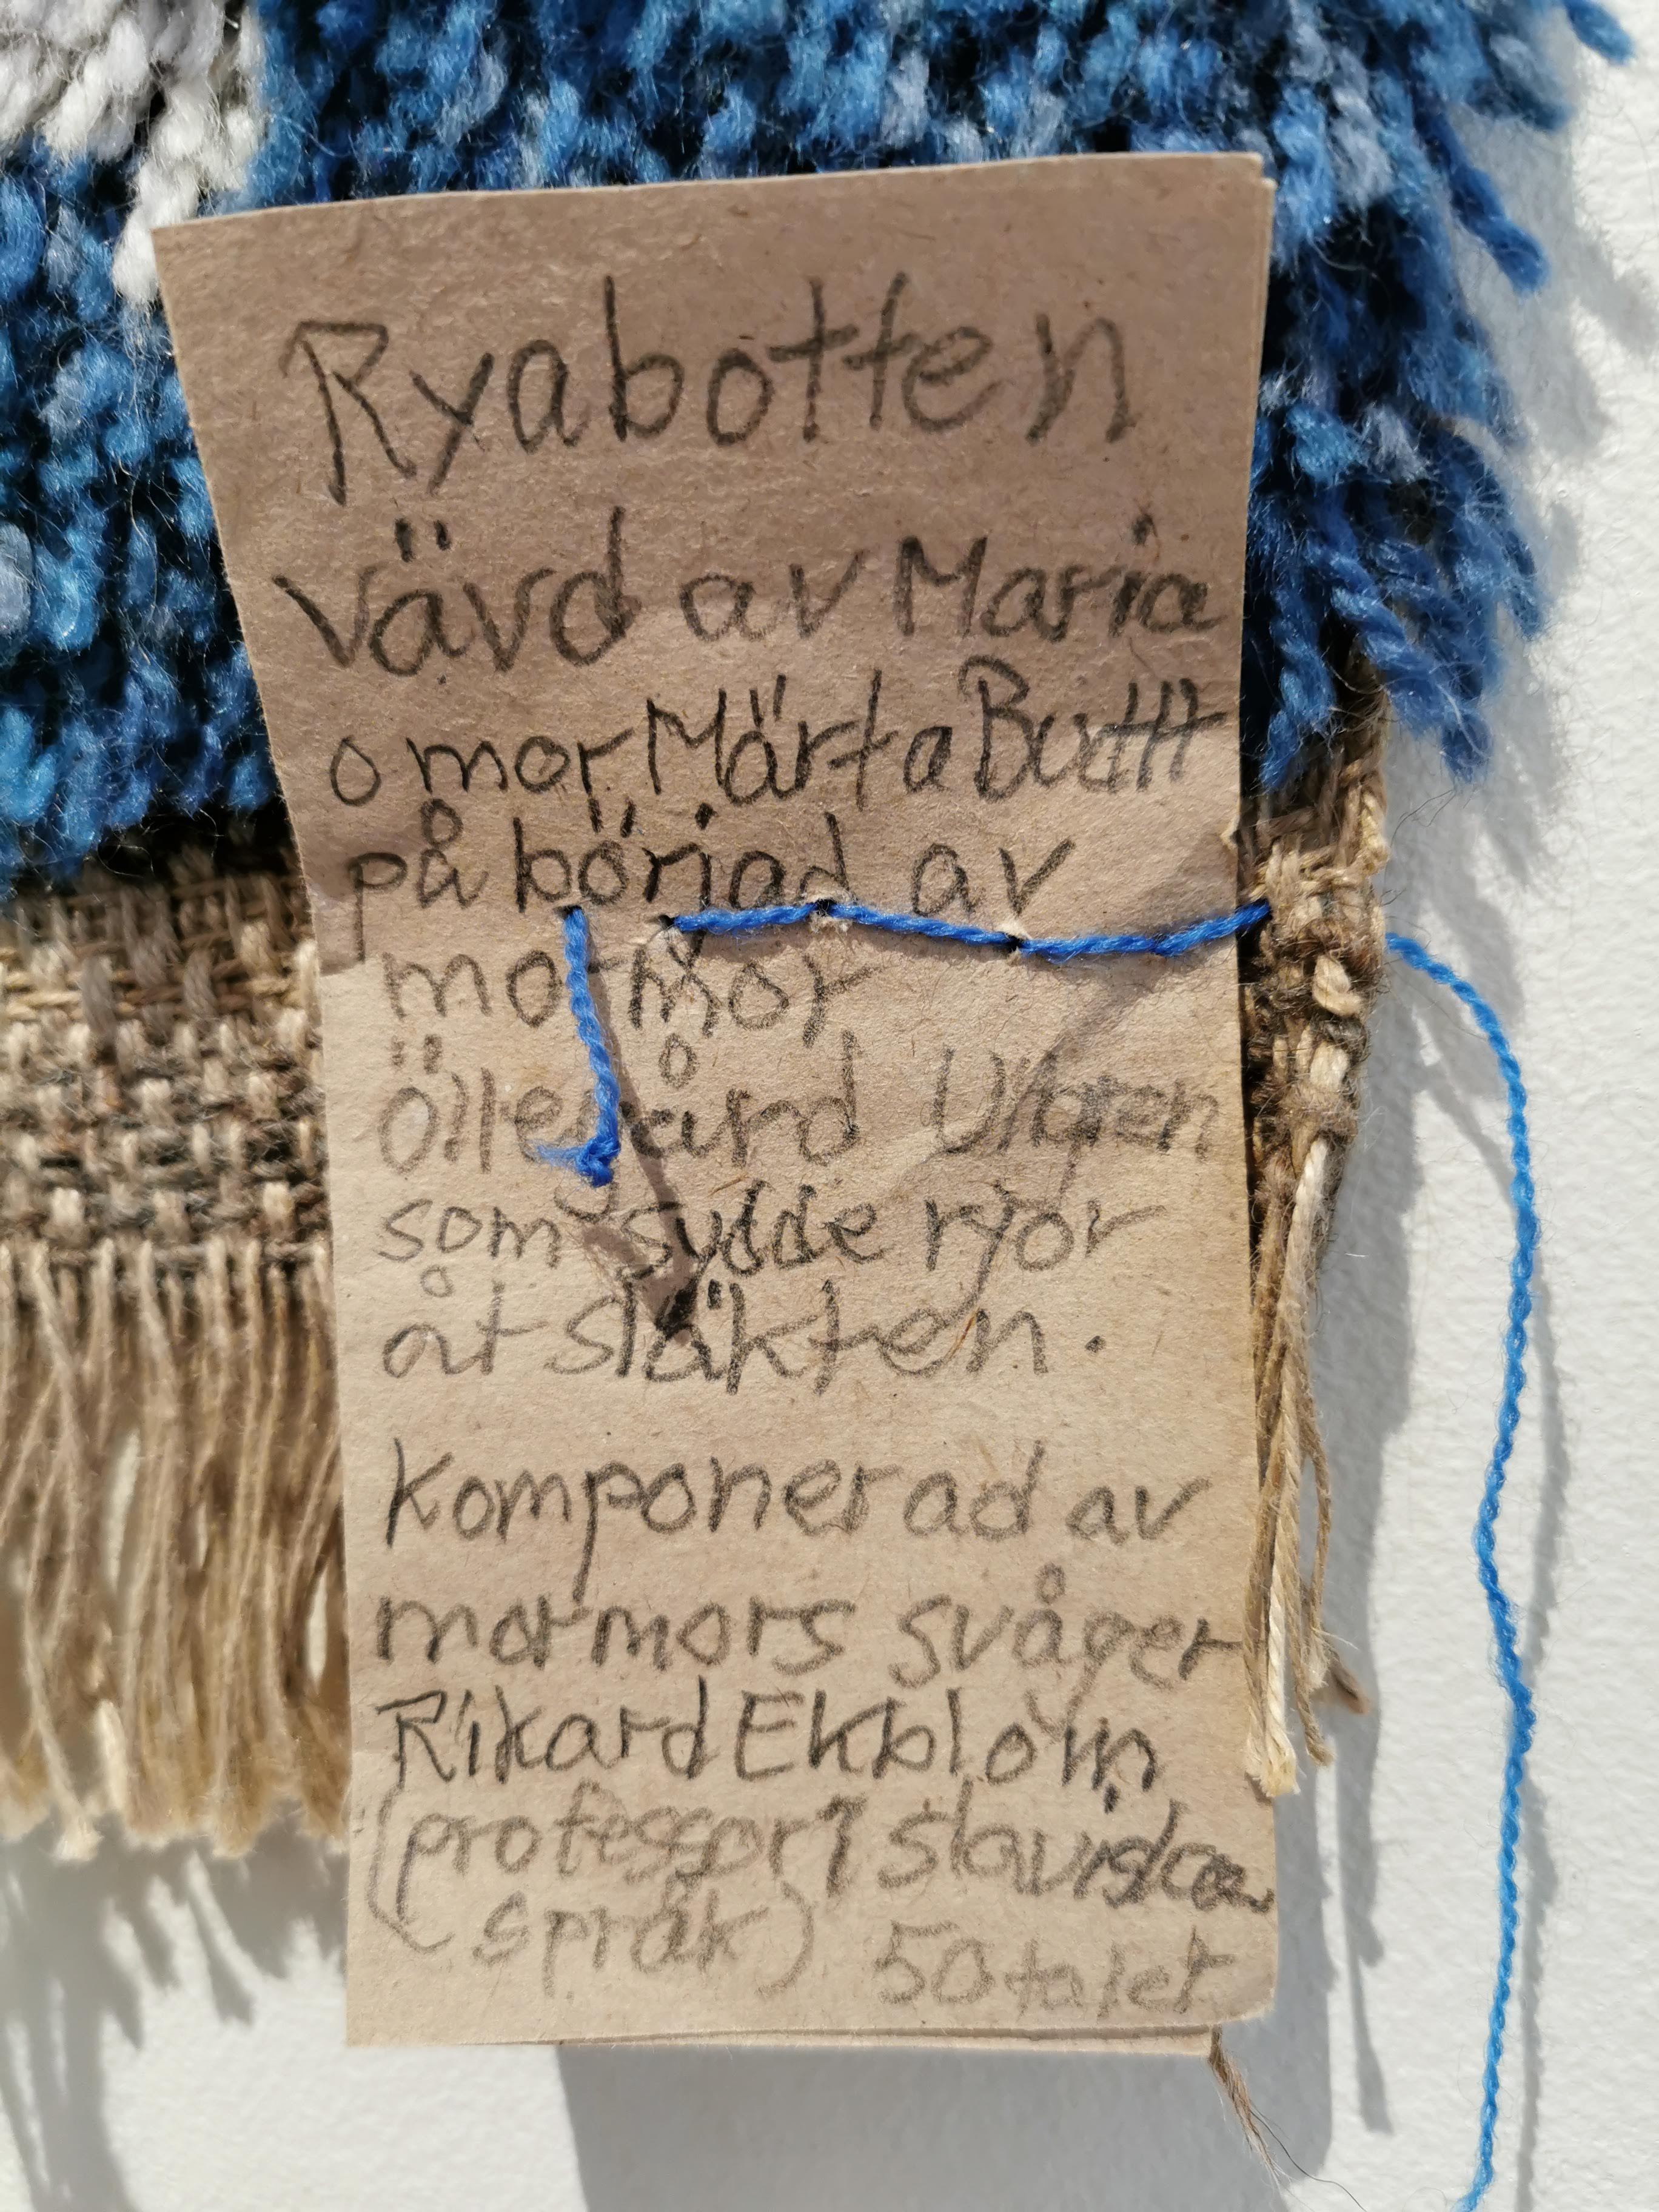 Ryabotten
vävd av Maria
o mor Märta Butt
på börjad av
mormor
som sydde ryor
åt släkten.
Komponerad av
mormors svåger
Rikard Ekblom
(professor i slaviska
språk) 50talet